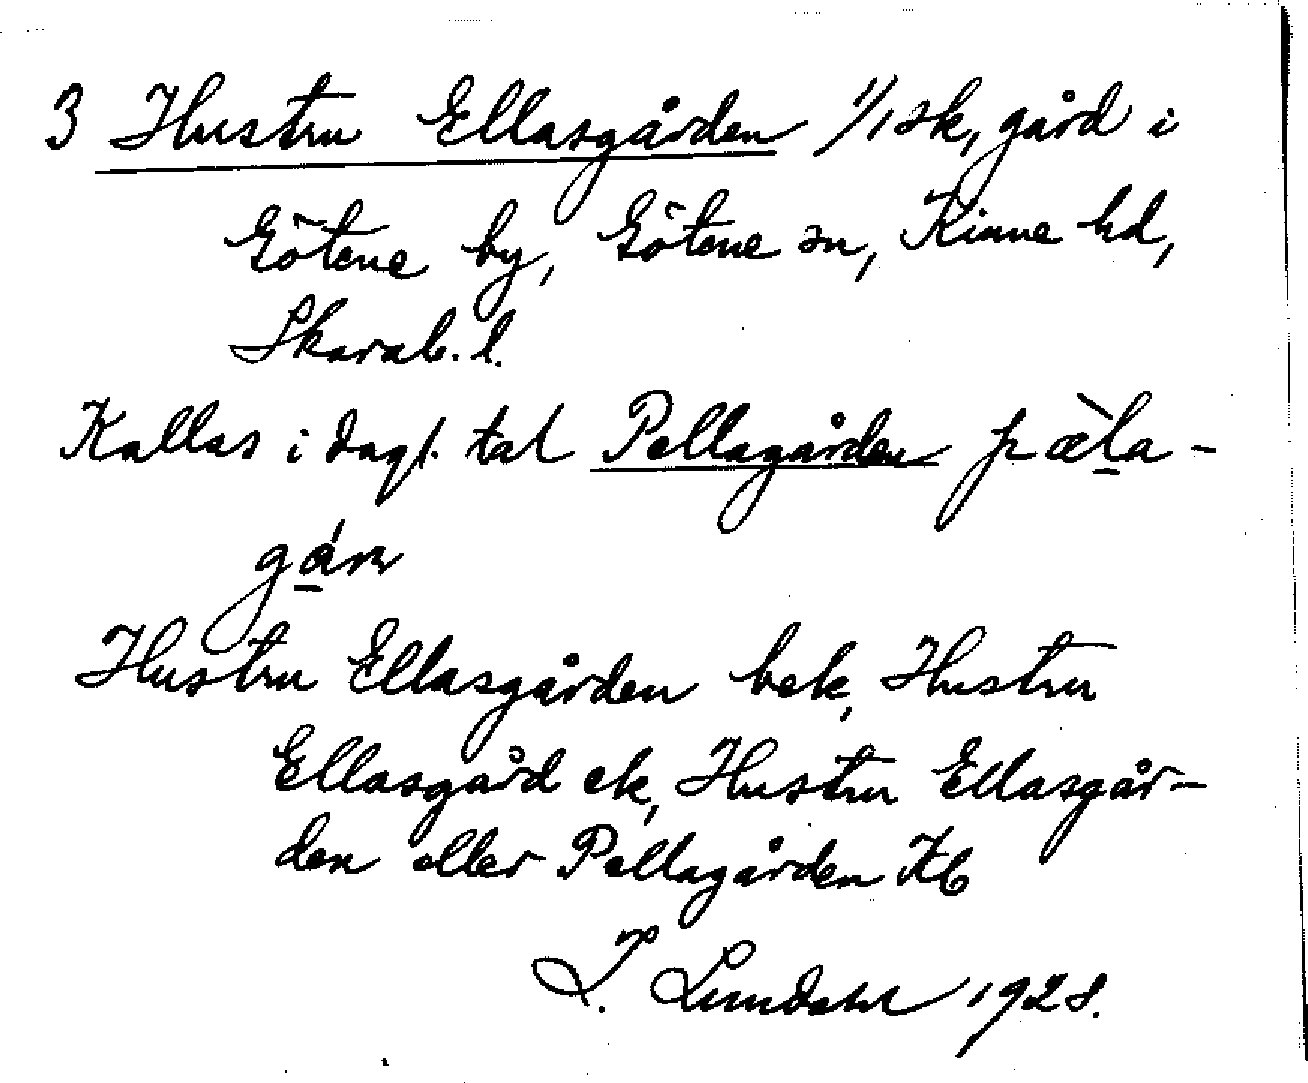 3 Hustru Ellasgården 1/1 sk, gård i
Götene by, Götene sn, Kinne hd,
Skarab. l.
Kallas i dagl. tal Pellagården pæ̀la-
gɑ́ɳ
Hustru Ellasgården bek, Hustru
Ellasgård ek, Hustru Ellasgår-
den eller Pellagården Kb
I. Lundahl 1928.